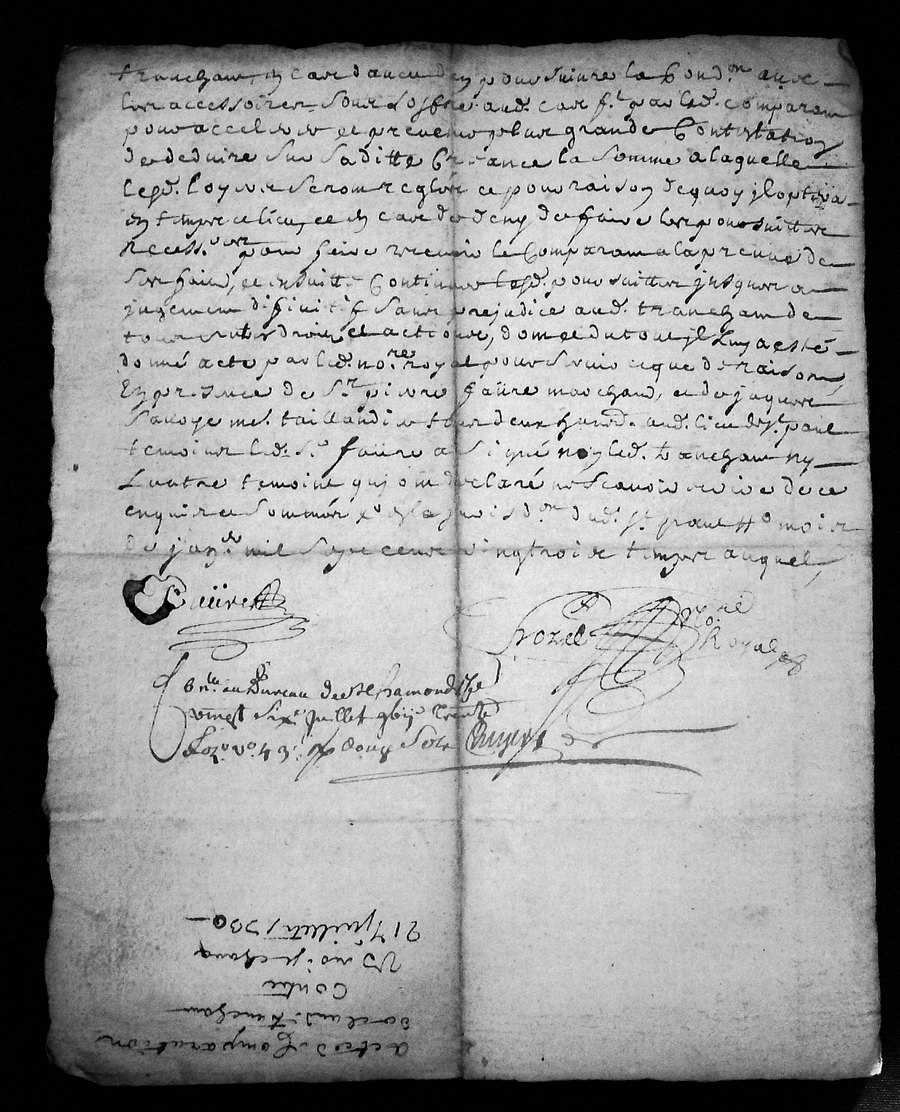 tranchant, en cas d'aveu d'en poursuivre la cond.on avec
les accessoires sous l'offre aud. cas f.t par led. comparant
pour acceleres et prevenir plus grande Contestation
de deduire sur saditte Creance la somme a laquelle
lesd. loyers seront reglés ce pour raison de quoy jl optera
en temps et lieu, et en cas de deny de faire les poursuittes
necess.res pour faire recevoir le Comparant a la preuve de
ses faits, et ensuitte Continuer lesd. poursuittes jusques a
jugement difinitif sans prejudice aud. tranchant de
tous autres droits et actions, dont et du tout jl luy a esté
donné acte par led. no.re royal pour servir ce que de raison,
En presence de S.r pierre faure marchand, et de jaques
Savoye m.e taillandier tous deux hand. aud. lieu de St. paul
temoins led. S.r faure a signé non led. tranchant ny
L'autre temoint qui ont declaré ne scavoir ecrire de ce
enquis et sommés dud. St. paul mois
de jan.er mil sept cens vingt trois temps auquel,
Faüre
Crozel No.re Royal
au Bureau de St Chamond le
vingt six.e juillet trente
43 Douze Sols
acte de Comparution
tranchant
Contre
21 Juillet 1730